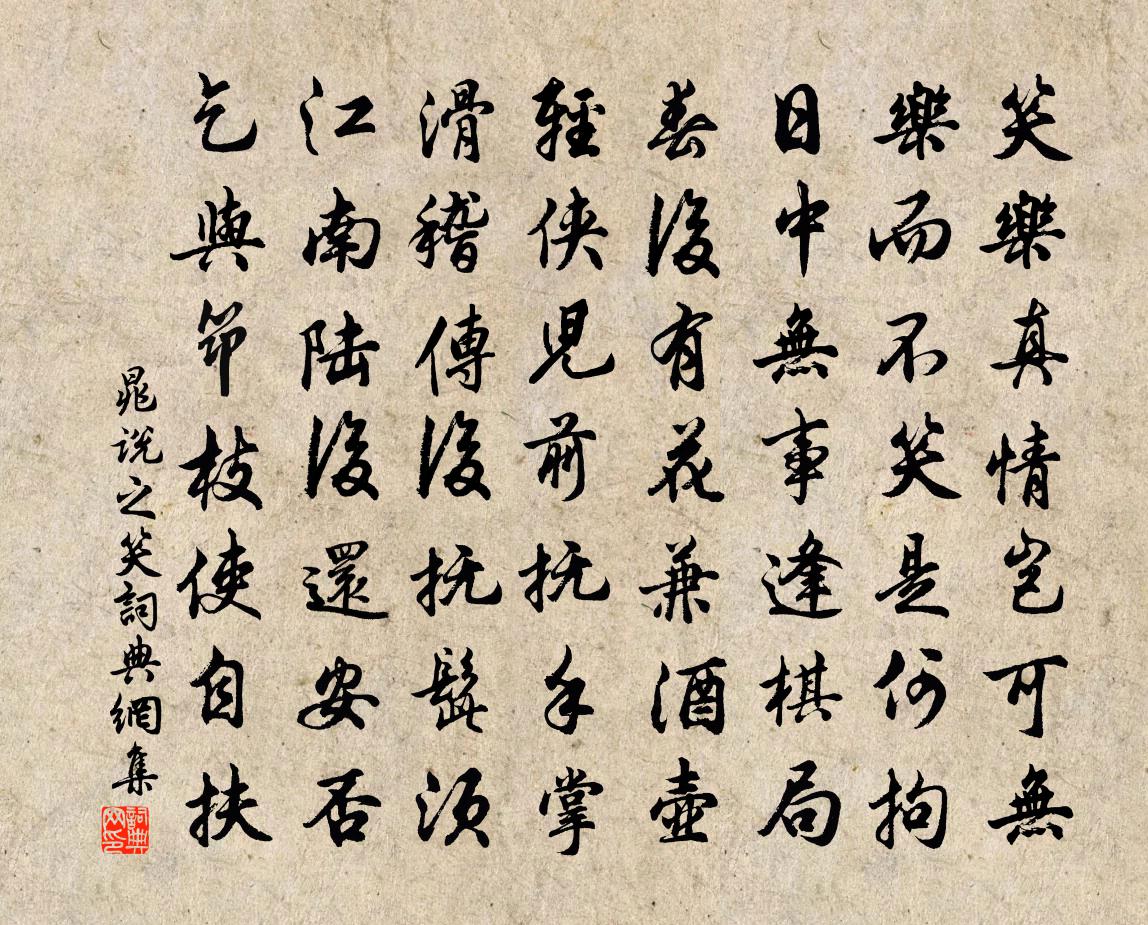 笑樂真情豈可無
樂而不笑是何拘
日中無事逢棋局
春後有花兼酒壺
輕俠兒前抚手掌
滑稽傳後抚髭須
江南陆後還安否
乞與筇枝使自扶
晁说之笑詞典網集
詞典
网印